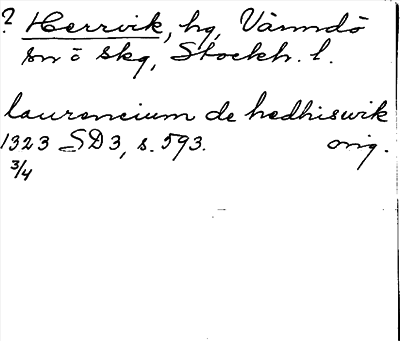 ? Herrvik, hg, Värmdö
sn o skg, Stockh. l.
laurencium de hedhiswik
1323 SD3, s. 593. orig.
3/4